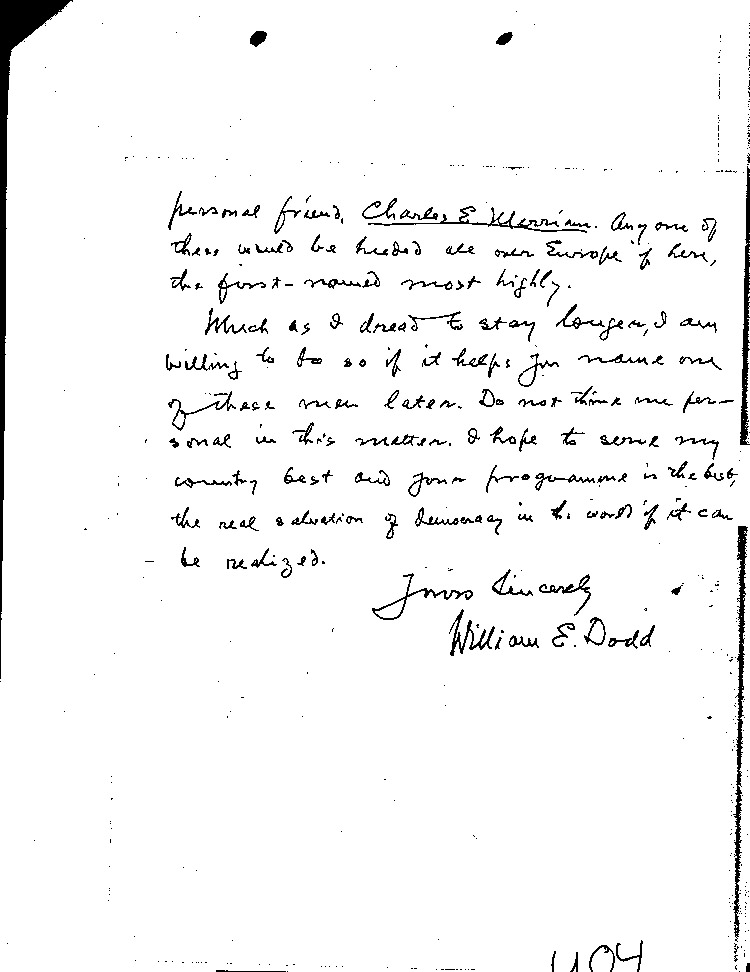 personal friend, Charles E Merriam. Any one of
these would be heeded all over Europe if here,
the first-named most highly.
Much as I dread to stay longer, I am
willing to do so if it helps you name one
of these men later. Do not think me per-
sonal in this matter. I hope to serve my
country best and your programme is the best,
the real salvation of democracy in the world if it can
be realized.
Yours Sincerely
William E. Dodd
404